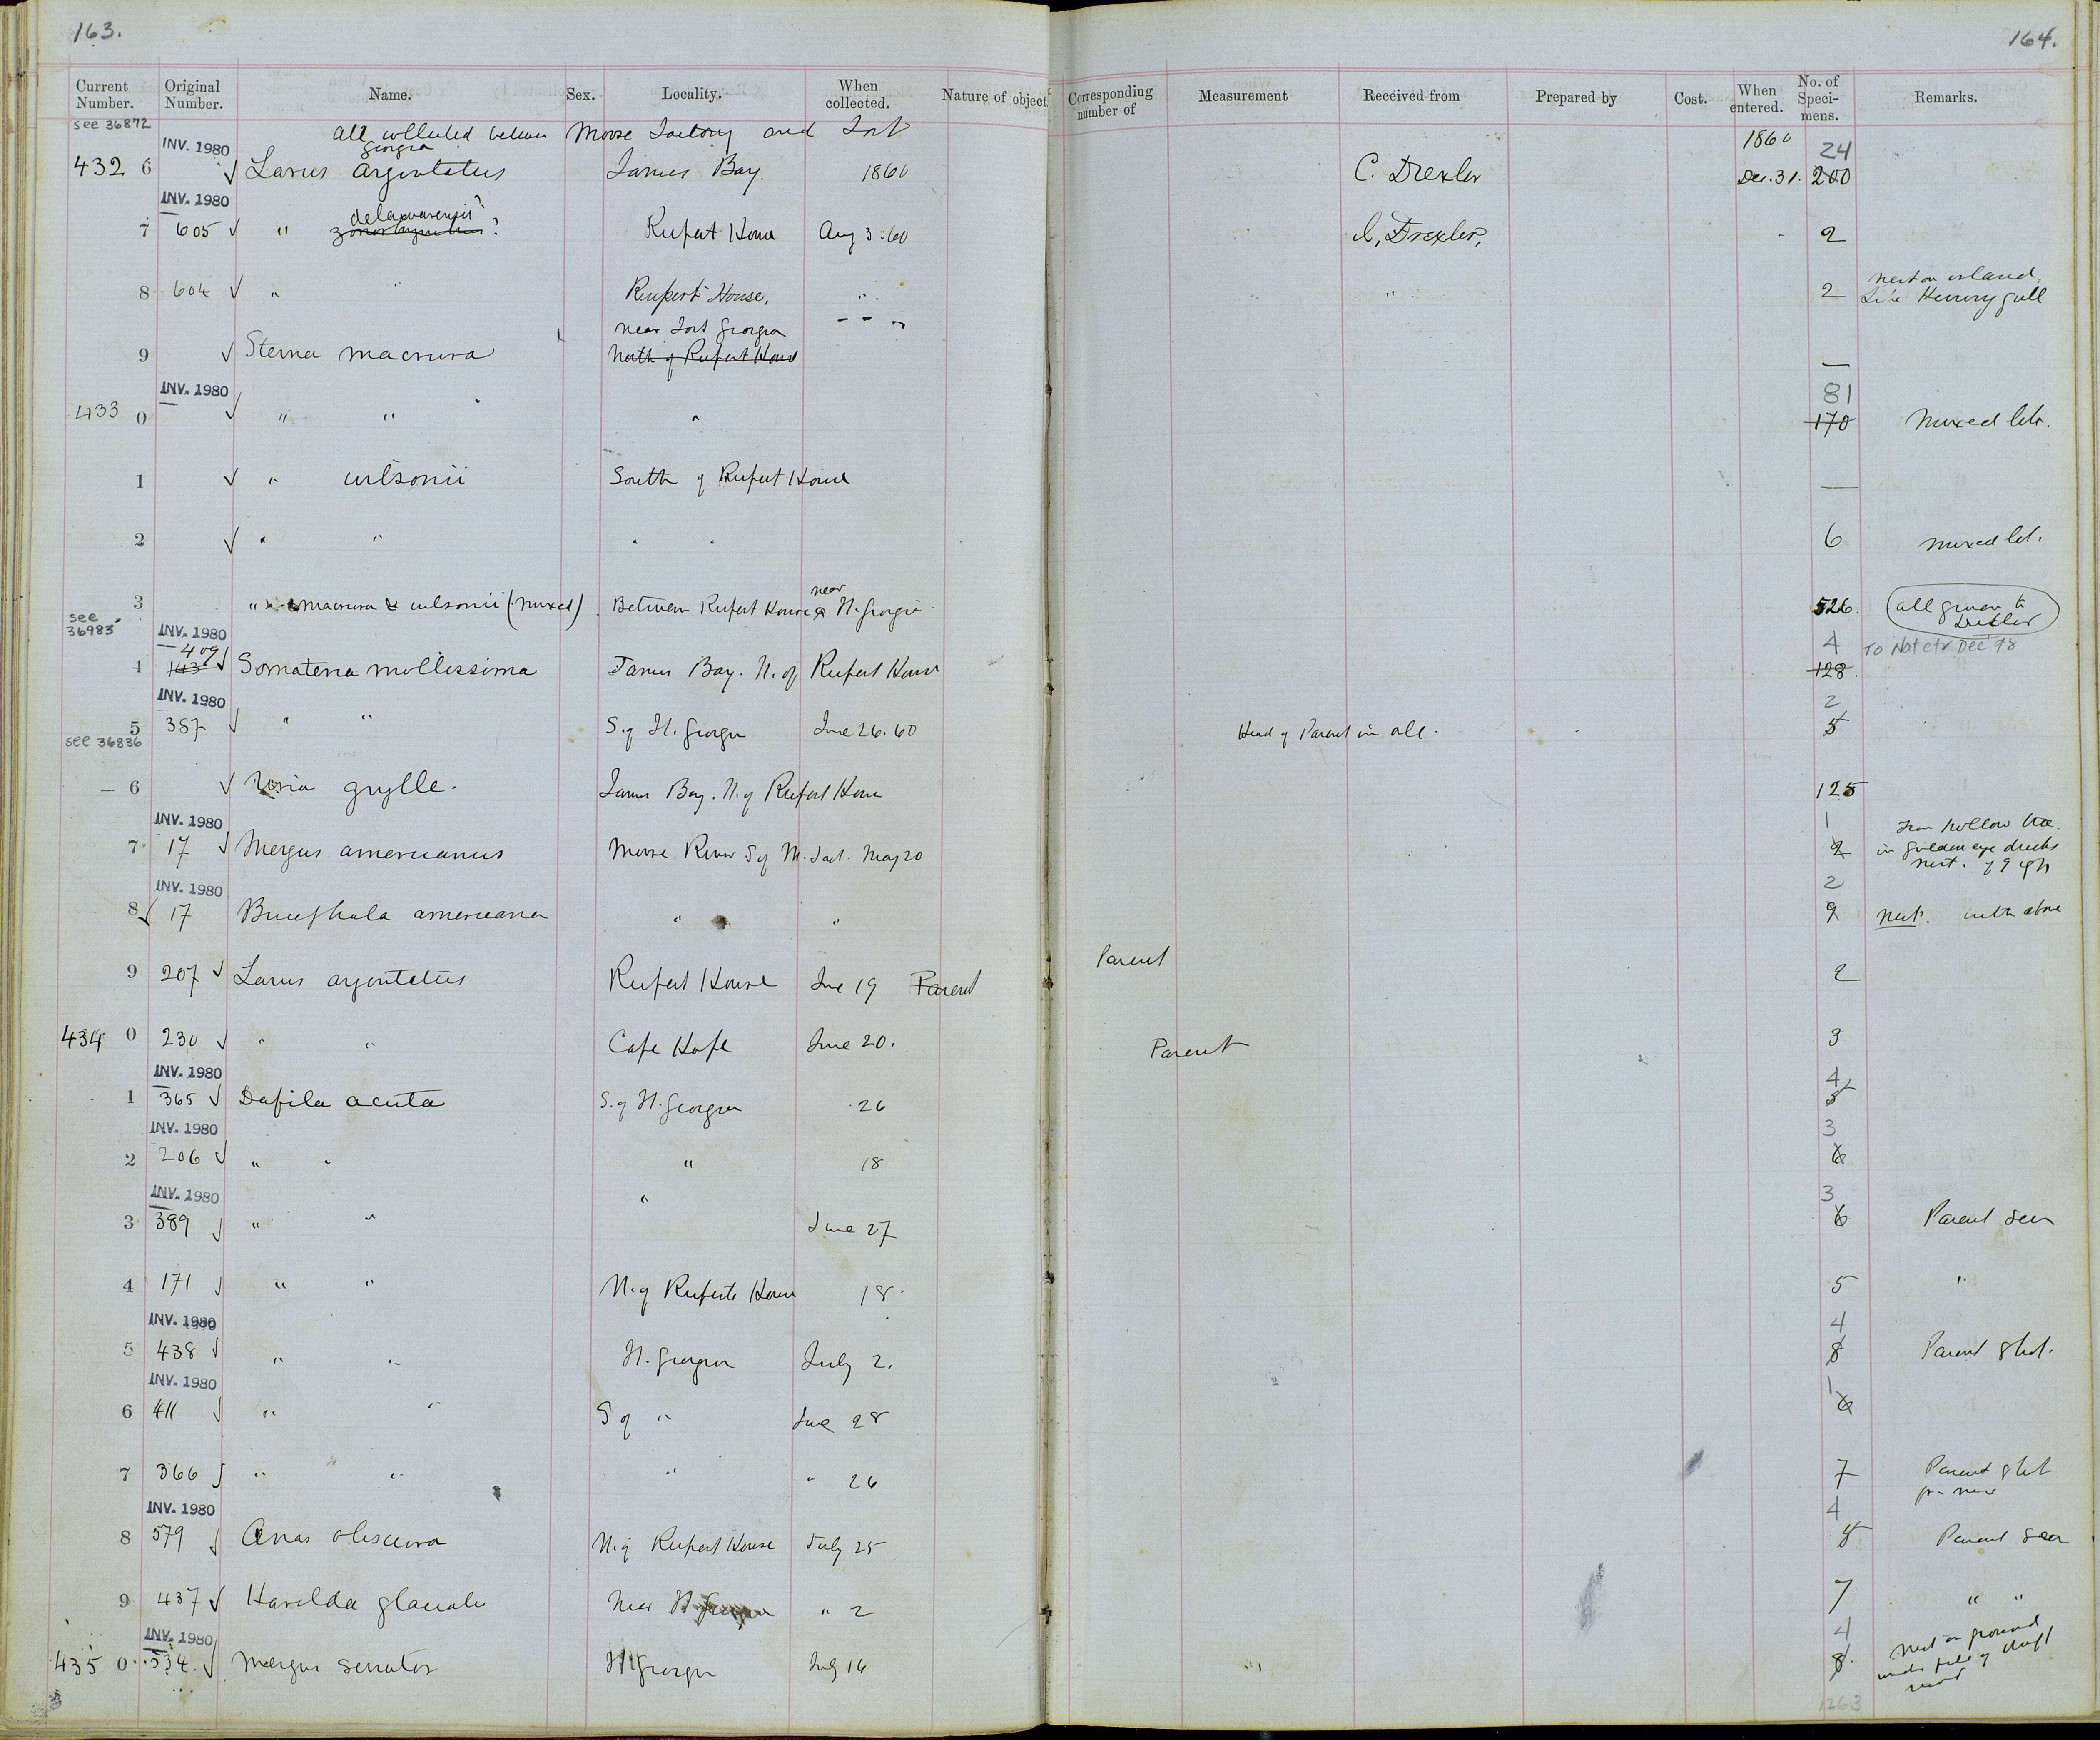 163.
164.
Current Number. Original Number. Name. Sex. Locality. When collected. Nature of object. Corresponding number of Measurement Received from Prepared by Cost. When entered. No. of Speci-mens. Remarks.
see 36872
All collected between Moose Factory and Fort
Georgia
1860
INV. 1980
24
432 6 √ Larus argentatus James Bay. 1860 C. Drexler Dec. 31. 200
INV. 1980
delawarensis?
7 605 √ " zonorhynchus? Rupert House Aug 3. 60 C. Drexler, 2
8 604 √ " " Rupert House, " " 2 nest on island
Like Herring gull
near Fort Georgia
9 √ Sterna macrura North of Rupert House —
INV. 1980
81
433 0 √ " " " 170 Mixed lots.
1 √ " wilsonii South of Rupert House —
2 √ " " " " 6 mixed lot.
near
3 " macrura & wilsonii (mixed) Between Rupert House & Ft. Georgia 526 all given to
Drexler
see
36983
INV. 1980
409
4 To Notctr Dec 98
4 143 √ Somateria mollissima James Bay. N. of Rupert House 128
INV. 1980
2
5 387 √ " " S. of Ft. Georgia June 26. 60 Head of Parent in alc. 5
see 36836
— 6 √ Uria grylle. James Bay. N. of Rupert House 125
INV. 1980
1
7 17 √ Mergus americanus Moose River S of M. Fact. May 20 2 From hollow tree
in golden eye ducks
nest. of 9 eggs
INV. 1980
2
8 √ 17 Bucephala americana " " 9 nest. with above
9 207 √ Larus argentatus Rupert House June 19 Parent Parent 2
434 0 230 √ " " Cape Hope June 20. Parent 3
INV. 1980
4
1 365 √ Dafila acuta S. of Ft. Georgia 26 5
INV. 1980
3
2 206 √ " " " 18 6
INV. 1980
3
3 389 √ " " " June 27 6 Parent seen
4 171 √ " " N. of Ruperts House 18. 5 "
INV. 1980
4
5 438 √ " " Ft. Georgia July 2. 8 Parent shot.
INV. 1980
1
6 411 √ " " S of " June 28 6
7 366 √ " " " " 26 7 Parent shot
INV. 1980
4
8 579 √ Anas obscura N. of Rupert House July 25 5 Parent seen
9 437 √ Harelda glacialis Near Ft. Georgia " 2 7 " "
INV. 1980
4
435 0 534 √ Mergus serrator Ft Georgia July 16 8 Nest on ground
under pile of drift
wood
1263